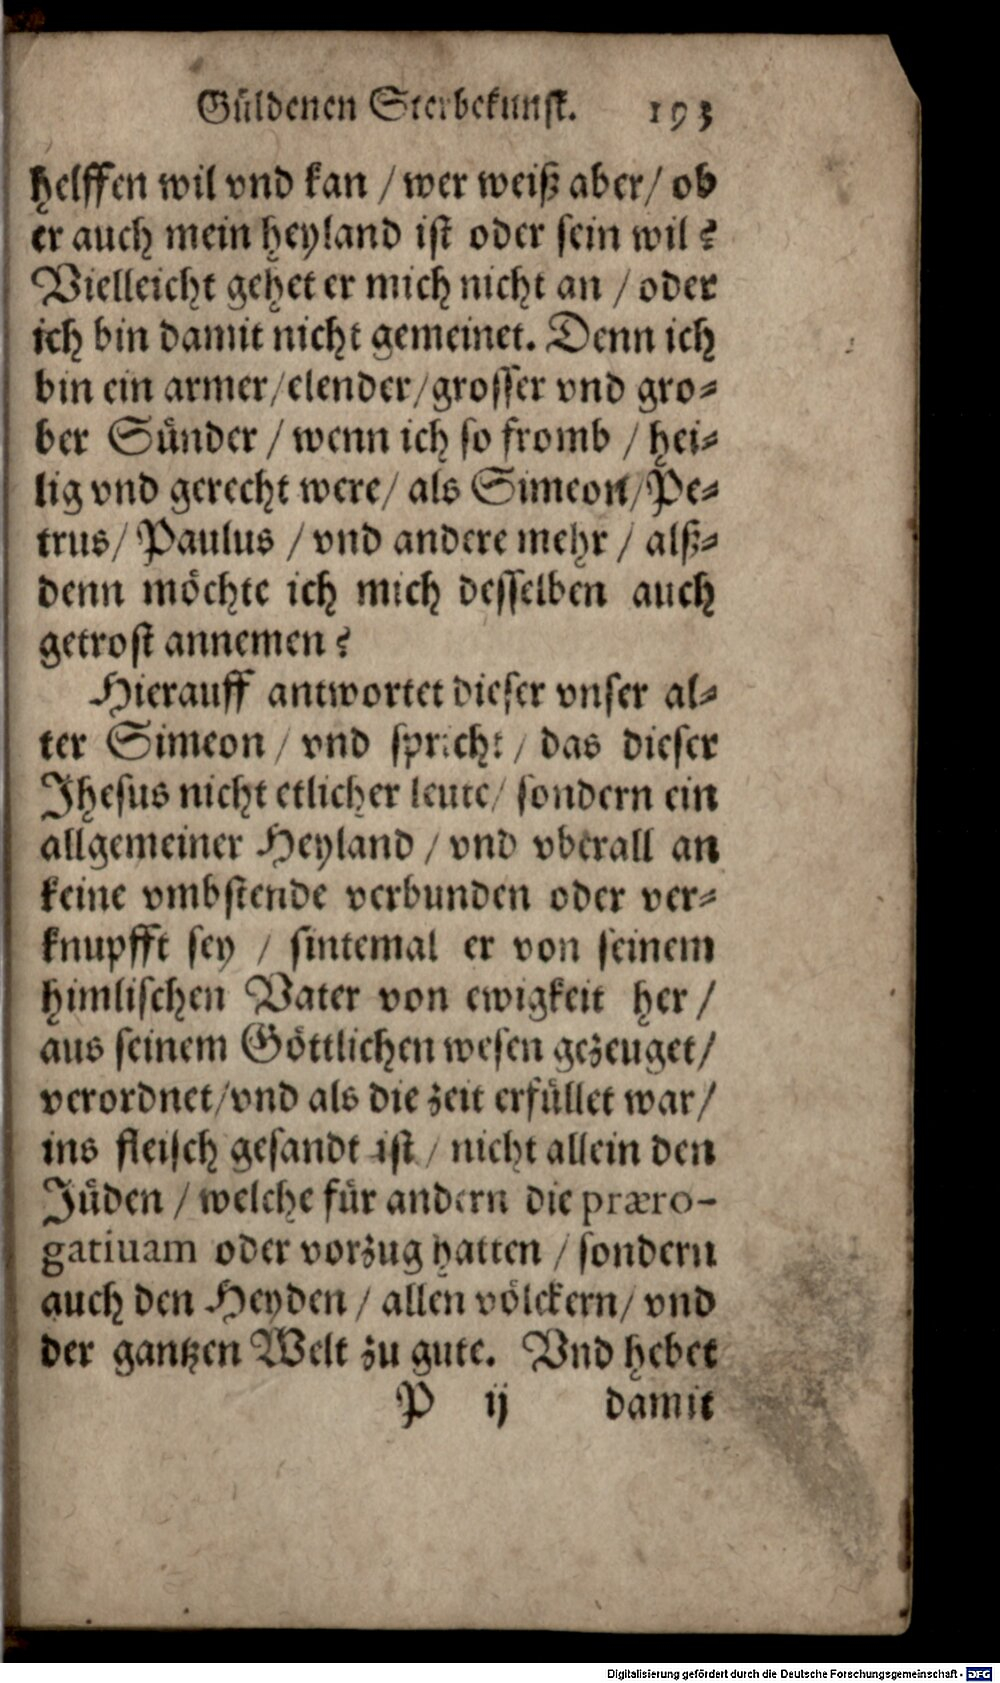 Güldenen Sterbekunst. 193
helffen wil vnd kan / wer weiß aber / ob
er auch mein heyland ist oder sein wil?
Vielleicht gehet er mich nicht an / oder
ich bin damit nicht gemeinet. Denn ich
bin ein armer/elender/grosser vnd gro-
ber Sünder / wenn ich so fromb / hei-
lig vnd gerecht were/ als Simeon/Pe-
trus/ Paulus / vnd andere mehr / alß-
denn möchte ich mich desselben auch
getrost annemen?
Hierauff antwortet dieser vnser al-
ter Simeon / vnd spricht / das dieser
Jhesus nicht etlicher leute/ sondern ein
allgemeiner Heyland / vnd vberall an
keine vmbstende verbunden oder ver-
knupfft sey / sintemal er von seinem
himlischen Vater von ewigkeit her /
aus seinem Göttlichen wesen gezeuget/
verordnet/vnd als die zeit erfüllet war/
ins fleisch gesandt ist / nicht allein den
Jüden / welche für andern die præro-
gatiuam oder vorzug hatten / sondern
auch den Heyden / allen völckern/ vnd
der gantzen Welt zu gute. Vnd hebet
P ij damit
Digitalisierung gefördert durch die Deutsche Forschungsgemeinschaft - DFG